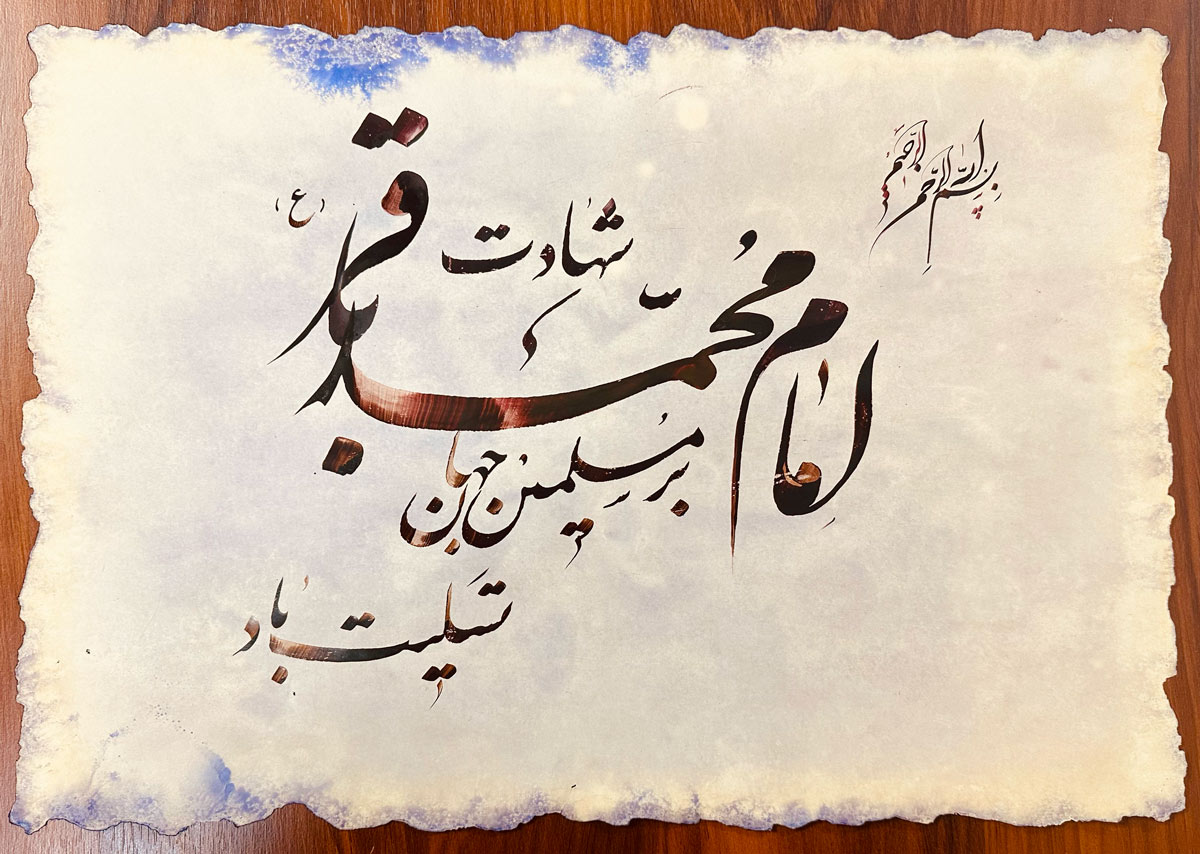 بسم الله الرحمن الرحیم
شهادت
امام محمد باقر (ع)
بر مسلمین جهان
تسلیت باد